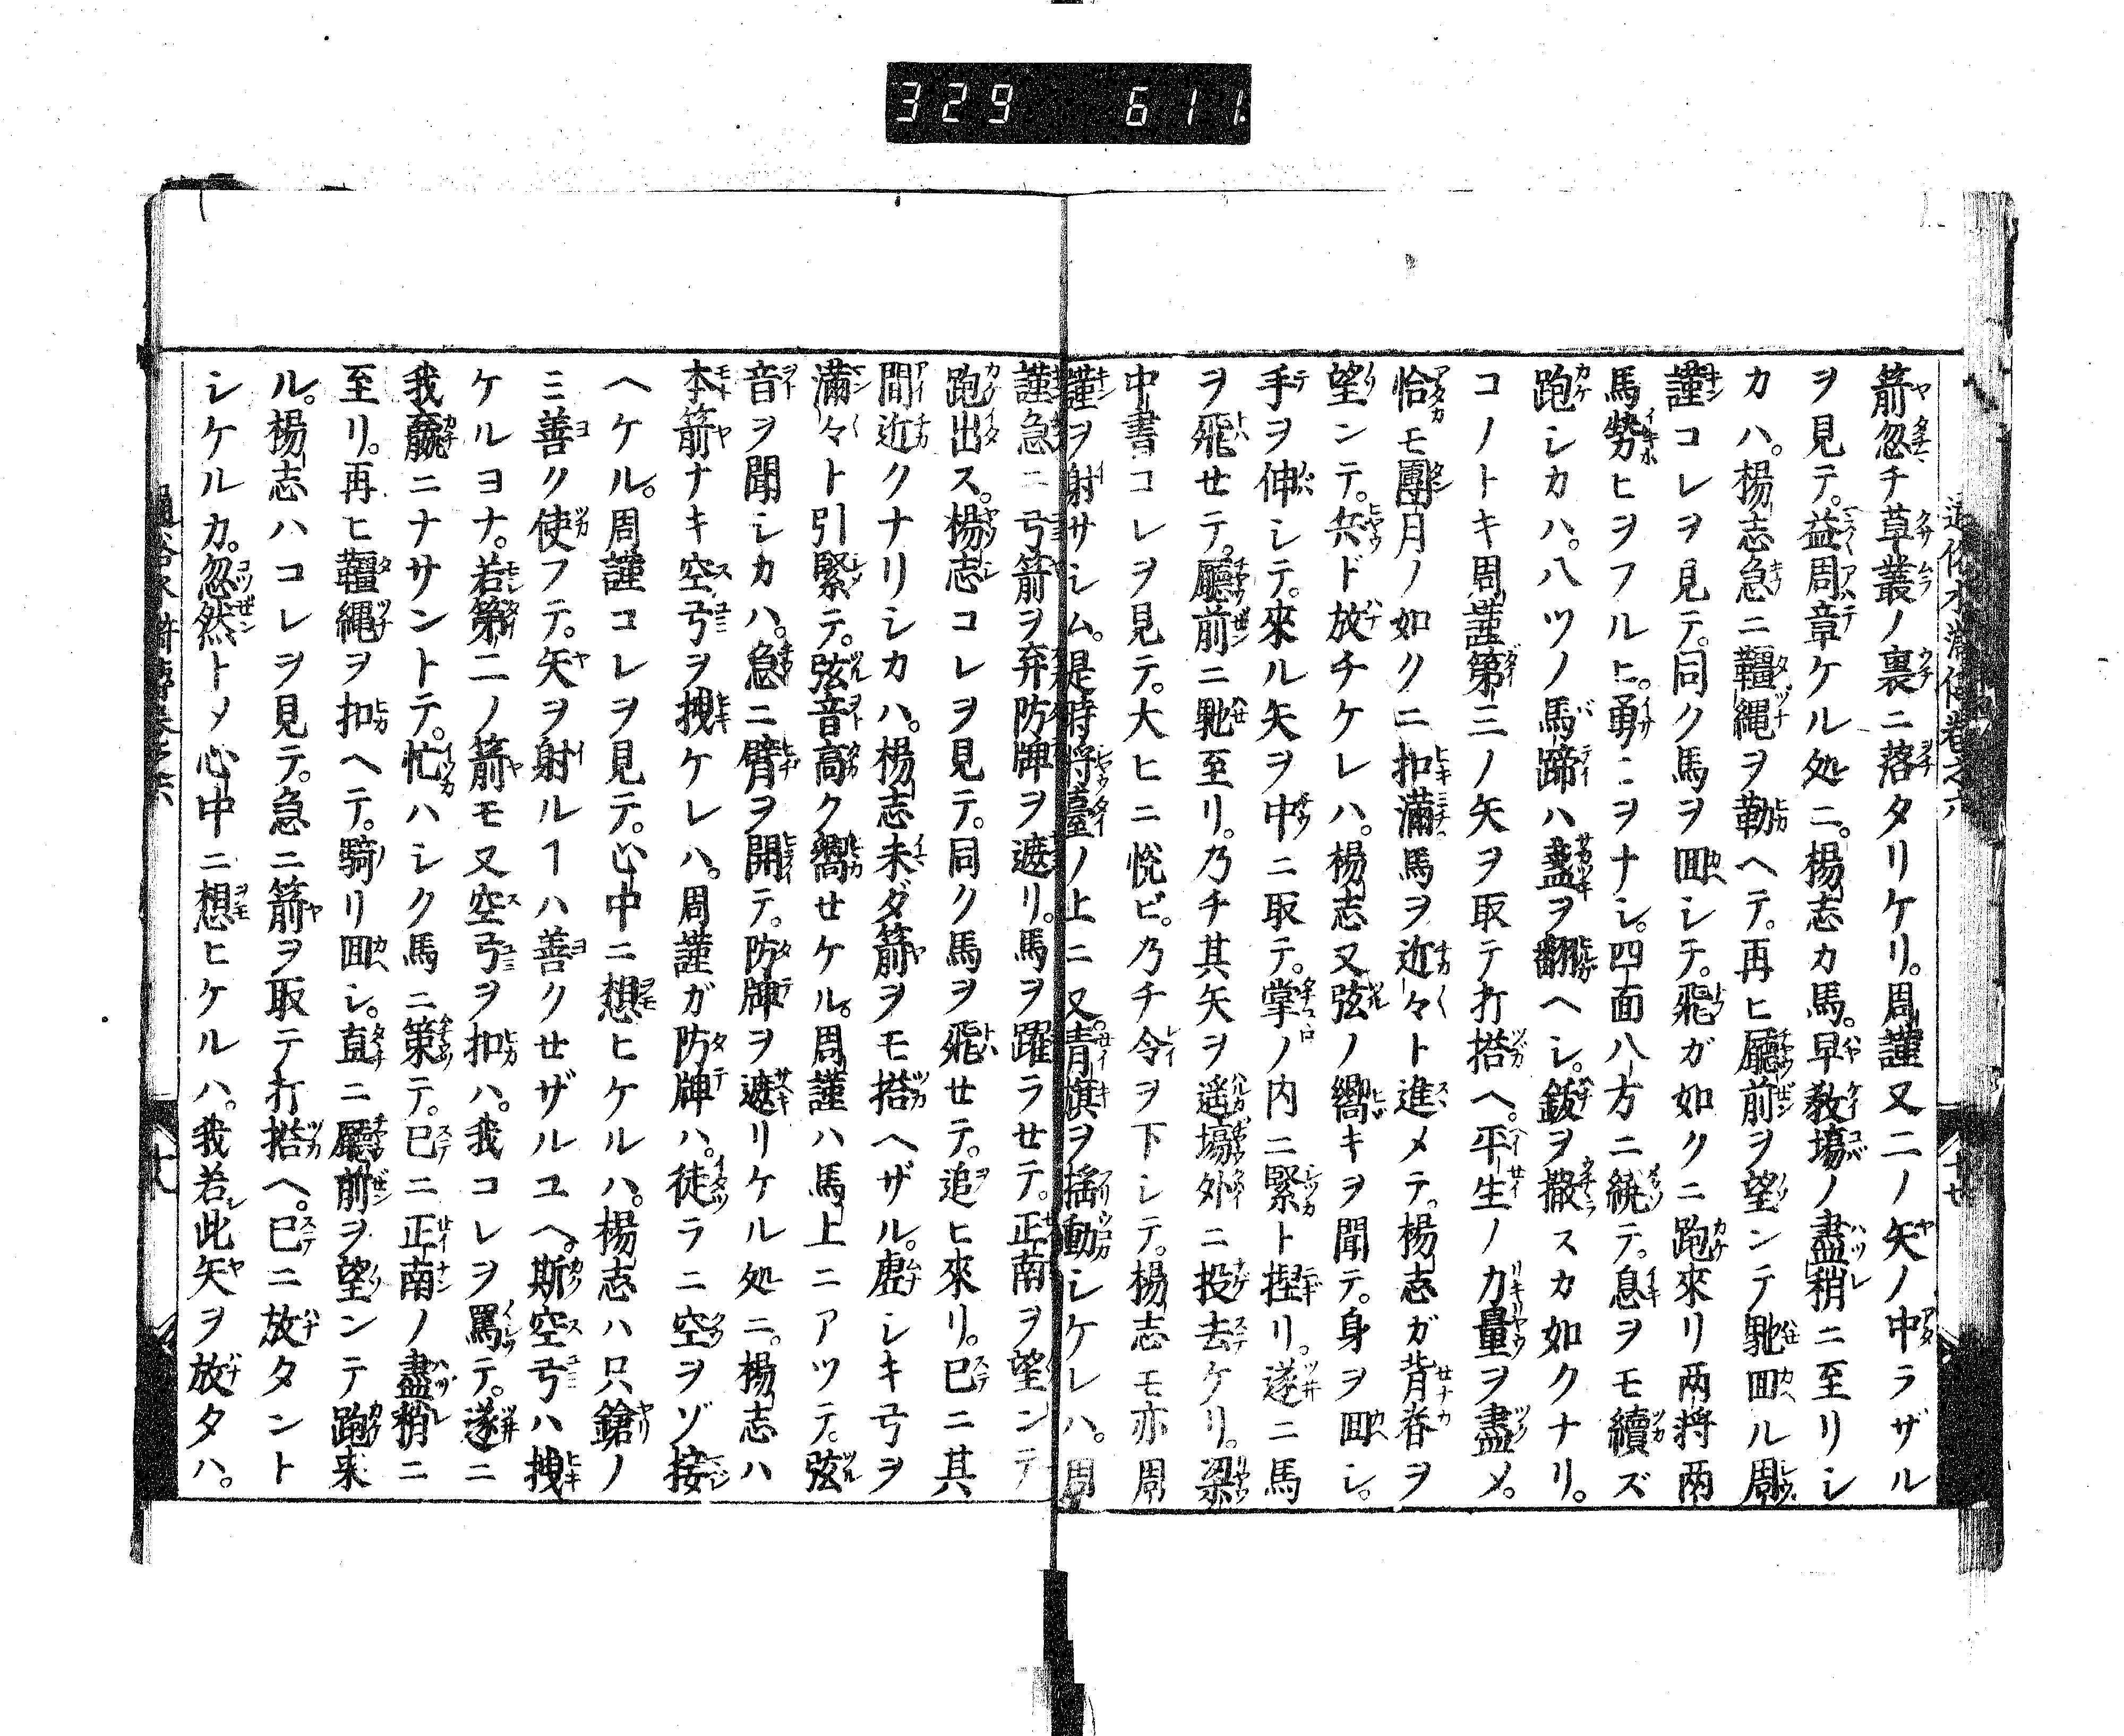 329 611
箭忽チ草叢ノ裏ニ落タリケリ。周謹又二ノ矢ノ中ラザル
ヲ見テ。益周章ケル処ニ。楊志カ馬。早教場ノ盡稍ニ至リシ
カハ。楊志急ニ韁縄ヲ勒ヘテ。再ヒ廳前ヲ望ンテ馳回ル周
謹コレヲ見テ。同ク馬ヲ回シテ。飛ガ如クニ跑來リ兩将兩
馬勢ヒヲフルヒ。勇ミヲナシ。四面八方ニ繞テ。息ヲモ續ズ
跑シカハ。八ツノ馬蹄ハ盞ヲ翻ヘシ。鈸ヲ撒スカ如クナリ。
コノトキ周謹第三ノ矢ヲ取テ打搭ヘ。平生ノ力量ヲ盡メ。
恰モ團月ノ如クニ扣滿馬ヲ近々ト進メテ。楊志ガ背脊ヲ
望ンテ。兵ド放チケレハ。楊志又弦ノ嚮キヲ聞テ。身ヲ回シ。
手ヲ伸シテ。來ル矢ヲ中ニ取テ。掌ノ内ニ緊ト揑リ。遂ニ馬
ヲ飛せテ。廳前ニ馳至リ。乃チ其矢ヲ遥塲外ニ投去ケリ。梁
中書コレヲ見テ。大ヒニ悦ビ。乃チ令ヲ下シテ。楊志モ亦周
謹ヲ射サシム。是時将臺ノ上ニ又。青旗ヲ揺動シケレハ。周
謹急ニ弓箭ヲ弃防牌ヲ遮リ。馬ヲ躍ラせテ。正南ヲ望ンテ
跑出ス。楊志コレヲ見テ。同ク馬ヲ飛せテ。追ヒ來リ。已ニ其
間近クナリシカハ。楊志未ダ箭ヲモ搭ヘザル。虚シキ弓ヲ
滿々ト引緊テ。弦音高ク嚮せケル。周謹ハ馬上ニアツテ。弦
音ヲ聞シカハ。急ニ臂ヲ開テ。防牌ヲ遮リケル処ニ。楊志ハ
本箭ナキ空弓ヲ拽ケレハ。周謹ガ防牌ハ。徒ラニ空ヲゾ接
ヘケル。周謹コレヲ見テ。心中ニ想ヒケルハ。楊志ハ只鎗ノ
ミ善ク使フテ。矢ヲ射ルヿハ善クせザルユヘ。斯空弓ハ拽
ケルヨナ。若第二ノ箭モ又空弓ヲ扣ハ。我コレヲ罵テ。遂ニ
我贏ニナサントテ。忙ハシク馬ニ策テ。已ニ正南ノ盡稍ニ
至リ。再ヒ韁縄ヲ扣ヘテ。騎リ回シ。直ニ廳前ヲ望ンテ跑来
ル。楊志ハコレヲ見テ。急ニ箭ヲ取テ打搭ヘ。已ニ放タント
シケルカ。忽然トメ心中ニ想ヒケルハ。我若此矢ヲ放タハ。